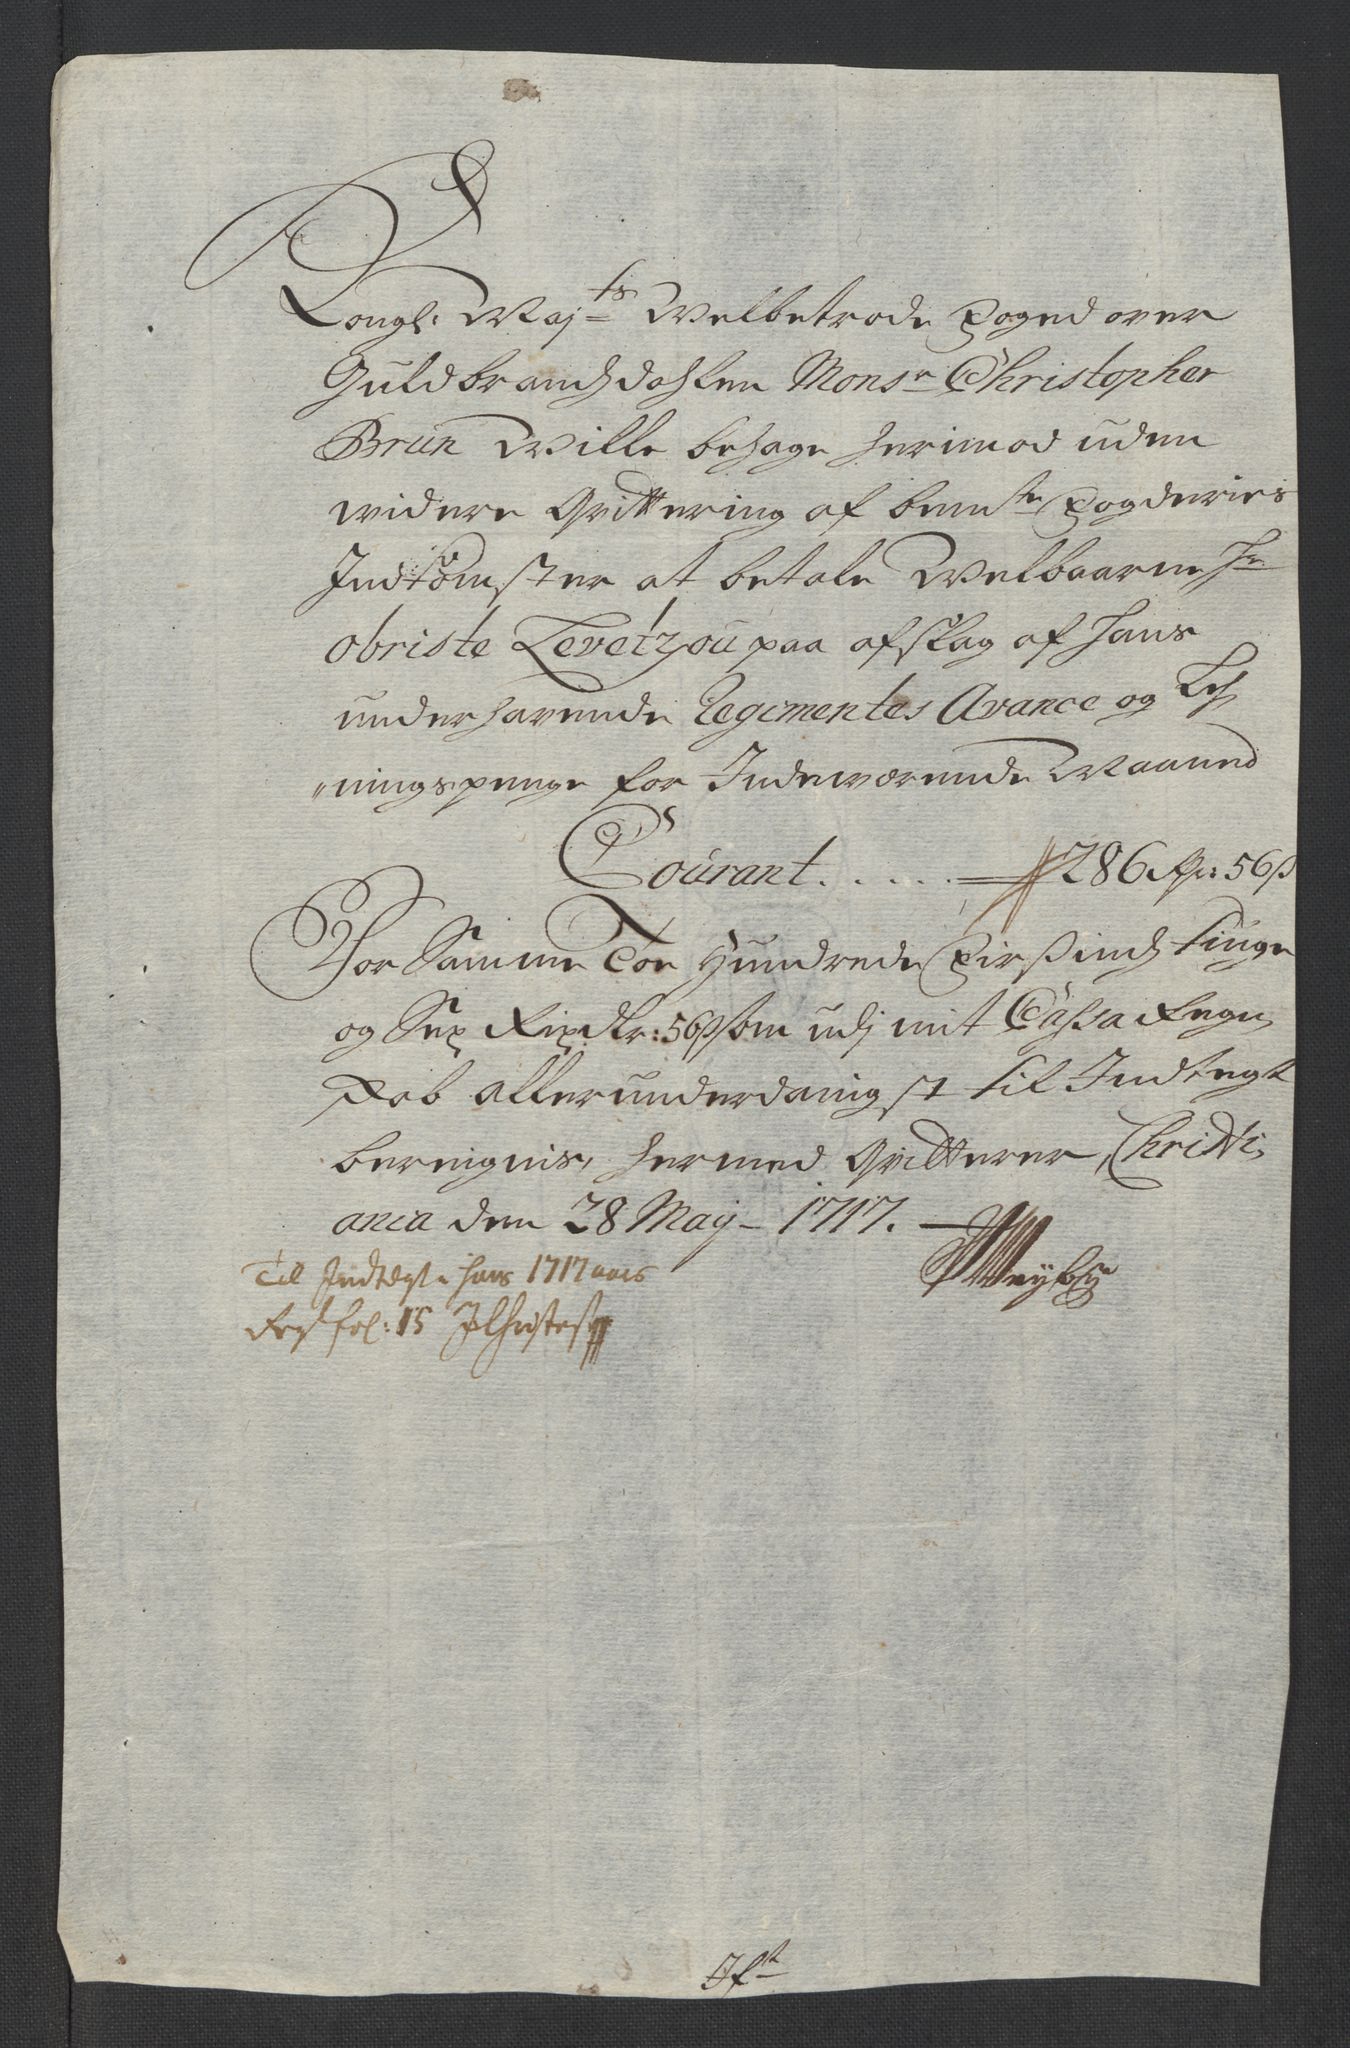 Kongl: Maj:ts Welbetrode Foged over
Guldbrandsdahlen Monsr Christopher
Brun Wille behage herimod uden
widere Qvittering af bemte Fogderies
Indkomster at betale Welbaarne Hr
Obriste Levetzou paa afslag af hans
underhavende Regimentes Avance og Leh
ningspenge for Indeværende Maaned
Courant . . . . . 286 Rdr: 56 ß
For Samme Toe Hundrede Firßindstiuge
og Sex Rixdlr: 56 ß som udj mit Cassa Regn
skab allerunderdanigst til Indtegt
beregnis, hermed Qvitterer, Christi
ania den 28 Maij 1717.
Til Indtegt i hans 1717 aars
Regsk fol: 15